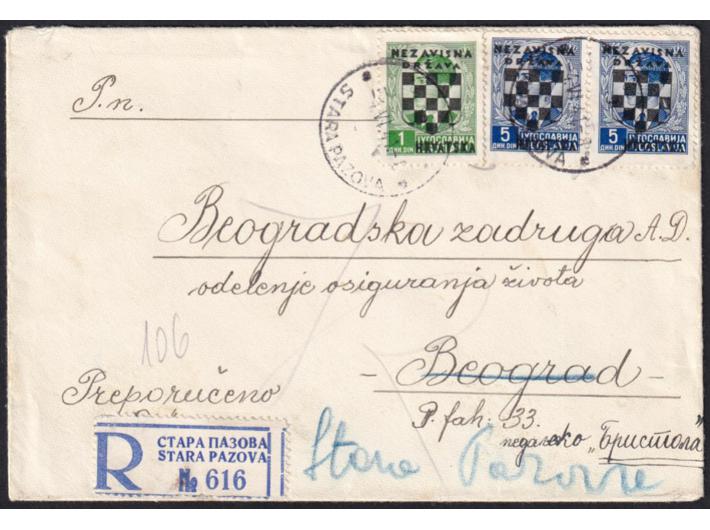 NEZAVISNA
DRŽAVA
1
ЈУГОСЛАВИЈА
ДИН. DIN
HRVATSKA
NEZAVISNA
DRŽAVA
5
ЈУГОСЛАВИЈА
ДИН. DIN
NEZAVISNA
DRŽAVA
5
ЈУГОСЛАВИЈА
ДИН. DIN
STARA PAZOVA
P.n.
Beogradska zadruga A.D.
odelenje osiguranja života
- Beograd -
106
Preporučeno
P. fah: 33.
"Бристола"
R
СТАРА ПАЗОВА
STARA PAZOVA
№ 616
Stara Pazova